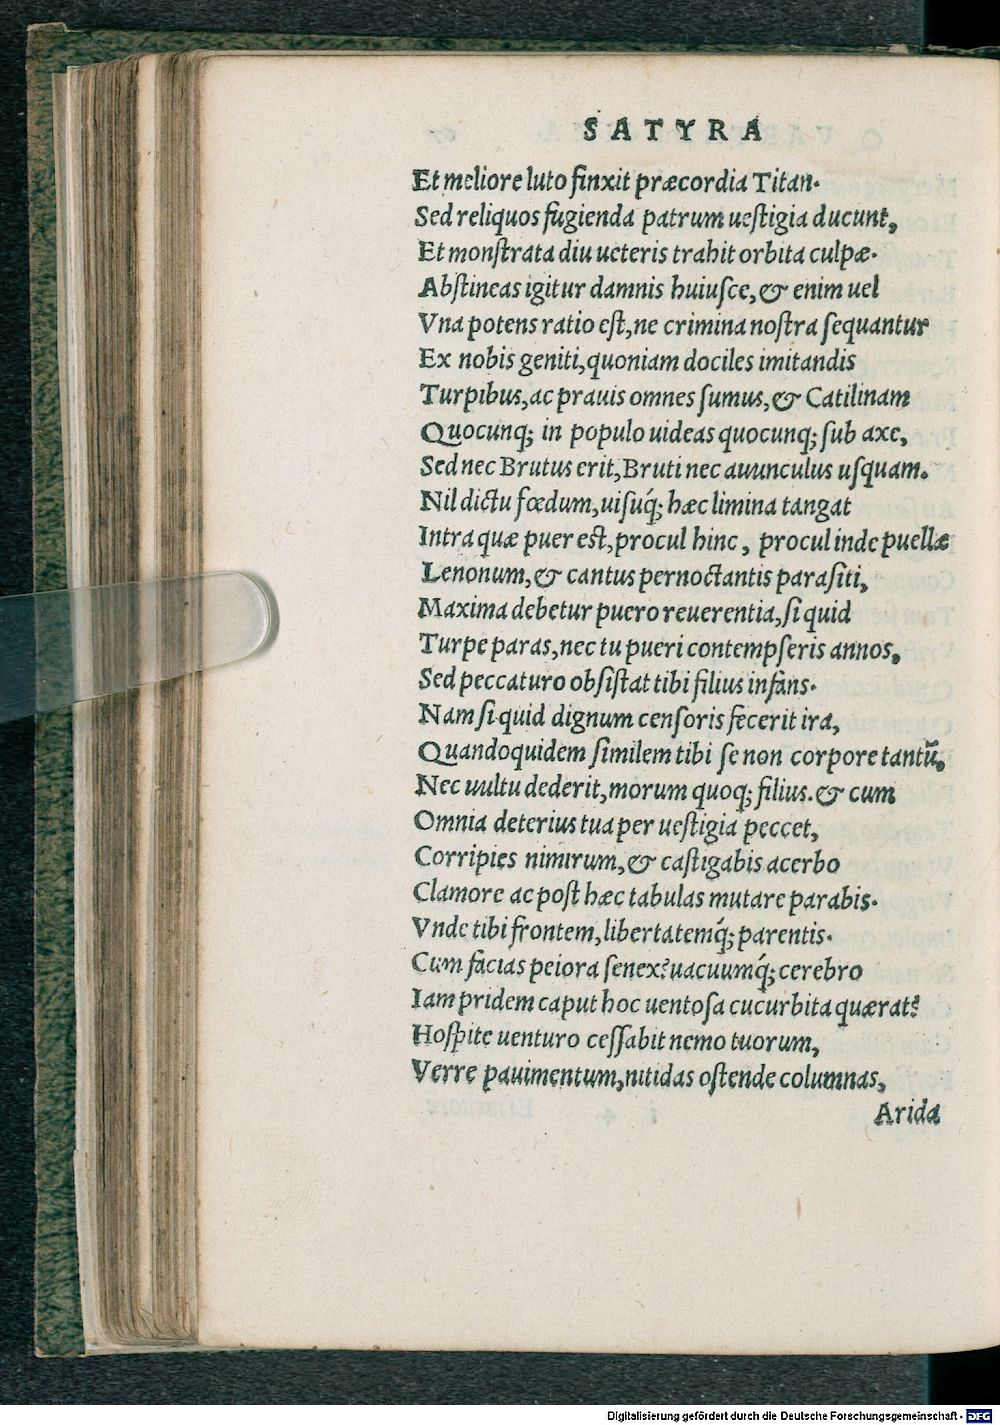 SATYRA
Et meliore luto finxit præcordia Titan.
Sed reliquos fugienda patrum uestigia ducunt,
Et monstrata diu ueteris trahit orbita culpæ.
Abstineas igitur damnis huiusce, & enim uel
Vna potens ratio est, ne crimina nostra sequantur
Ex nobis geniti, quoniam dociles imitandis
Turpibus, ac prauis omnes sumus, & Catilinam
Quocunq; in populo uideas quocunq; sub axe,
Sed nec Brutus erit, Bruti nec auunculus usquam.
Nil dictu fœdum, uisuq́; hæc limina tangat
Intra quæ puer est, procul hinc, procul inde puellæ
Lenonum, & cantus pernoctantis parasiti,
Maxima debetur puero reuerentia, si quid
Turpe paras, nec tu pueri contempseris annos,
Sed peccaturo obsistat tibi filius infans.
Nam si quid dignum censoris fecerit ira,
Quandoquidem similem tibi se non corpore tantū,
Nec uultu dederit, morum quoq; filius. & cum
Omnia deterius tua per uestigia peccet,
Corripies nimirum, & castigabis acerbo
Clamore ac post hæc tabulas mutare parabis.
Vnde tibi frontem, libertatemq́; parentis.
Cum facias peiora senex? uacuumq́; cerebro
Iam pridem caput hoc uentosa cucurbita quærat?
Hospite uenturo cessabit nemo tuorum,
Verre pauimentum, nitidas ostende columnas,
Arida
Digitalisierung gefördert durch die Deutsche Forschungsgemeinschaft - DFG